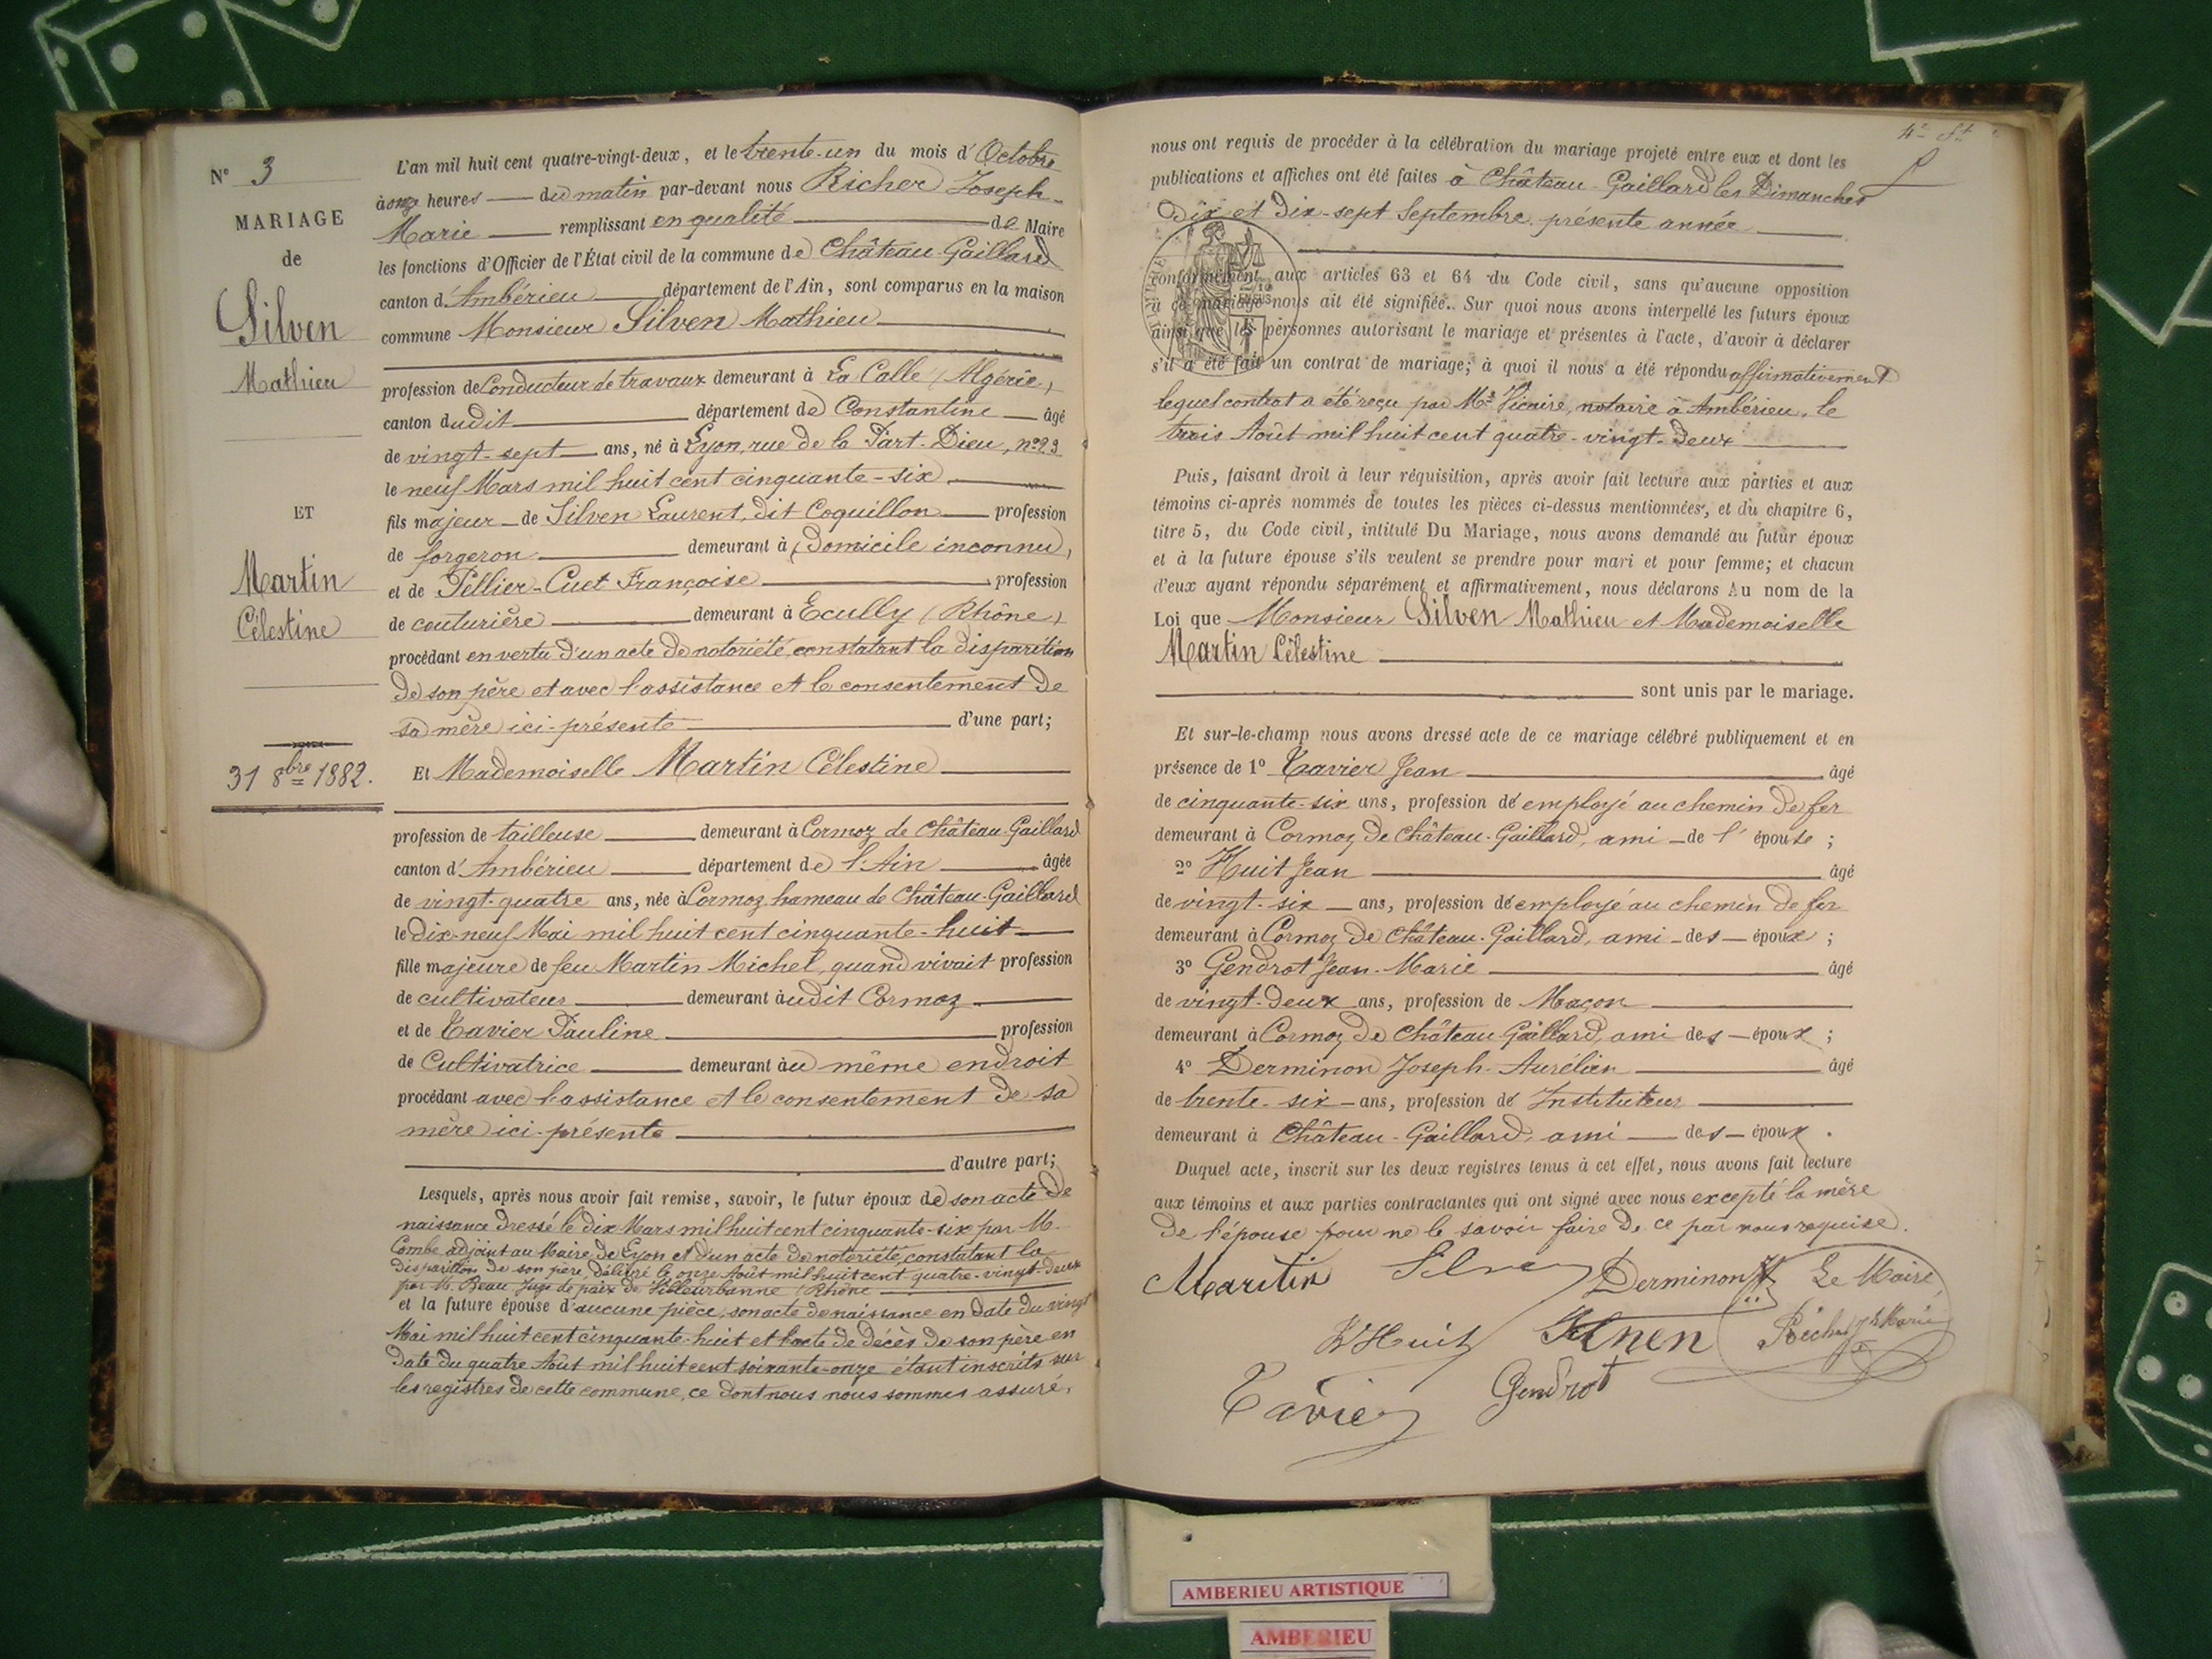 N° 3
MARIAGE
de
Silven
Mathieu
ET
Martin
Célestine
31 8bre 1882.
L'an mil huit cent quatre-vingt-deux, et le trente-un du mois d'Octobre
à onze heures du matin par-devant nous Richer Joseph-
Marie remplissant en qualité de Maire
les fonctions d'Officier de l'État civil de la commune de Château-Gaillard
canton d'Ambérieu département de l'Ain, sont comparus en la maison
commune Monsieur Silven Mathieu
profession de Conducteur de travaux demeurant à La Calle (Algérie)
canton dudit département de Constantine âgé
de vingt-sept ans, né à Lyon, rue de la Part-Dieu, n° 23
le neuf Mars mil huit cent cinquante-six
fils majeur de Silven Laurent, dit Coquillon profession
de forgeron demeurant à (domicile inconnu)
et de Pellier-Cuet Françoise profession
de couturière demeurant à Ecully (Rhône)
procédant en vertu d'un acte de notoriété, constatant la disparition
de son père et avec l'assistance et le consentement de
sa mère ici-présente d'une part;
Et Mademoiselle Martin Célestine
profession de tailleuse demeurant à Cormoz de Château-Gaillard
canton d'Ambérieu département de l'Ain âgée
de vingt-quatre ans, née à Cormoz hameau de Château-Gaillard
le dix-neuf Mai mil huit cent cinquante-huit
fille majeure de feu Martin Michel, quand vivait profession
de cultivateur demeurant audit Cormoz
et de Tavier Pauline profession
de Cultivatrice demeurant au même endroit
procédant avec l'assistance et le consentement de sa
mère ici-présente
d'autre part;
Lesquels, après nous avoir fait remise, savoir, le futur époux de son acte de
naissance dressé le dix Mars mil huit cent cinquante-six par M.
Combe adjoint au Maire de Lyon et d'un acte de notoriété, constatant la
disparition de son père, délivré le onze Août mil huit cent quatre-vingt-deux
par M. Beau Juge de paix de Villeurbanne (Rhône
et la future épouse d'aucune pièce, son acte de naissance en date du vingt
Mai mil huit cent cinquante-huit et l'acte de décès de son père en
date du quatre Août mil huit cent soixante-onze étant inscrits sur
les registres de cette commune, ce dont nous nous sommes assuré,
nous ont requis de procéder à la célébration du mariage projeté entre eux et dont les
publications et affiches ont été faites à Château-Gaillard les Dimanches
dix et dix-sept Septembre présente année
conformément aux articles 63 et 64 du Code civil, sans qu'aucune opposition
à ce mariage nous ait été signifiée. Sur quoi nous avons interpellé les futurs époux
ainsi que les personnes autorisant le mariage et présentes à l'acte, d'avoir à déclarer
s'il a été fait un contrat de mariage; à quoi il nous a été répondu affirmativement
lequel contrat a été reçu par Me Vicaire, notaire à Ambérieu, le
trois Août mil huit cent quatre-vingt-deux
Puis, faisant droit à leur réquisition, après avoir fait lecture aux parties et aux
témoins ci-après nommés de toutes les pièces ci-dessus mentionnées, et du chapitre 6,
titre 5, du Code civil, intitulé Du Mariage, nous avons demandé au futur époux
et à la future épouse s'ils veulent se prendre pour mari et pour femme; et chacun
d'eux ayant répondu séparément et affirmativement, nous déclarons Au nom de la
Loi que Monsieur Silven Mathieu et Mademoiselle
Martin Célestine
sont unis par le mariage.
Et sur-le-champ nous avons dressé acte de ce mariage célébré publiquement et en
présence de 1° Tavier Jean âgé
de cinquante-six ans, profession d'employé au chemin de fer
demeurant à Cormoz de Château-Gaillard, ami de l'épouse;
2° Huit Jean âgé
de vingt-six ans, profession d'employé au chemin de fer
demeurant à Cormoz de Château-Gaillard, ami des époux;
3° Gendrot Jean-Marie âgé
de vingt-deux ans, profession de Maçon
demeurant à Cormoz de Château-Gaillard, ami des époux;
4° Derminon Joseph-Aurélien âgé
de trente-six ans, profession d'Instituteur
demeurant à Château-Gaillard, ami des époux.
Duquel acte, inscrit sur les deux registres tenus à cet effet, nous avons fait lecture
aux témoins et aux parties contractantes qui ont signé avec nous excepté la mère
de l'épouse pour ne le savoir faire de ce par nous requise.
Martin Silven Derminon Le Maire,
Huit Richer Jh Marie
Tavier Gendrot
AMBERIEU ARTISTIQUE
AMBERIEU